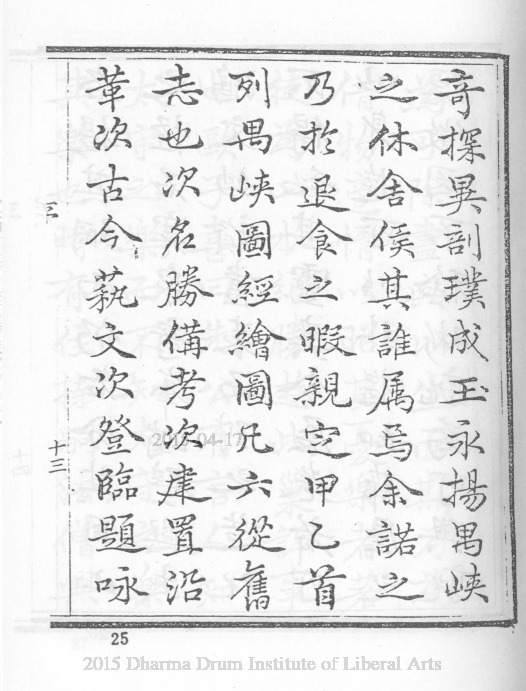 竒探異剖璞成玉永揚禺峽
之休舍侯其誰属焉余諾之
乃於退食之暇親定甲乙首
列禺峽圖經繪圖凡六從舊
志也次名勝備考次建置沿
革次古今藝文次登臨題咏
三
十三
25
2015-04-17
2015 Dharma Drum Institute of Liberal Arts